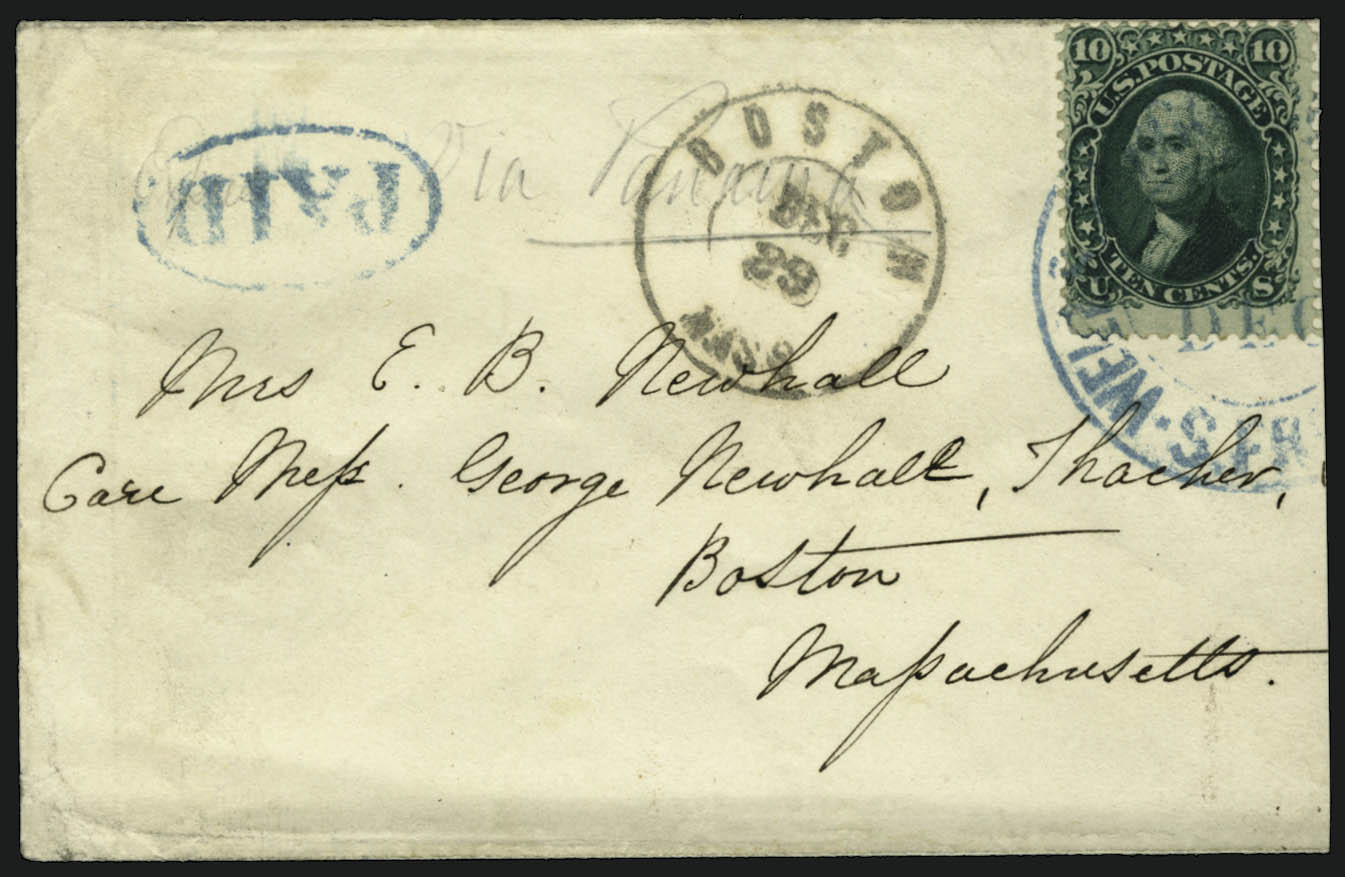 10 10
U.S. POSTAGE
TEN CENTS.
U S
PAID
Via Panama
BOSTON
DEC
29
MASS
DEC
WEL
S
Mrs E. B. Newhall
Care Meſs. George Newhall, Thacher,
Boston
Maſsachusetts.